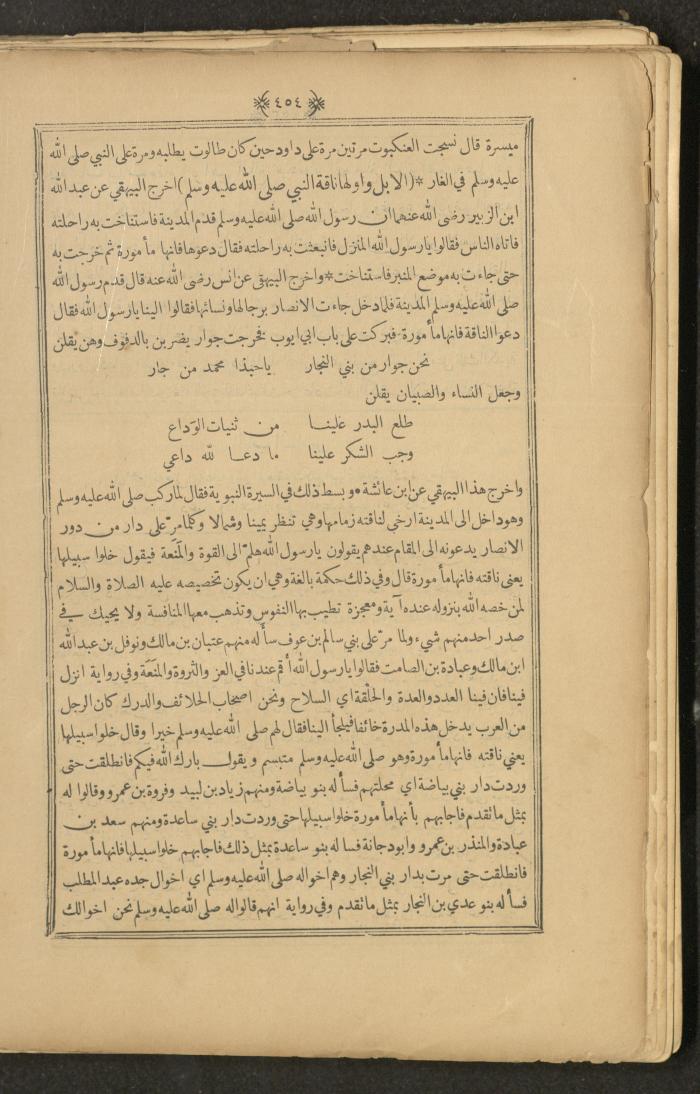 ﴿ ٤٥٤ ﴾
ميسرة قال نسجت العنكبوت مرتين مرة على داود حين كان طالوت يطلبه ومرة على النبي صلى الله
عليه وسلم في الغار *(الابل واولها ناقة النبي صلى الله عليه وسلم) اخرج البيهقي عن عبد الله
ابن الزبير رضى الله عنهما ان رسول الله صلى الله عليه وسلم قدم المدينة فاستناخت به راحلته
فاتاه الناس فقالوا يا رسول الله المنزل فانبعثت به راحلته فقال دعوها فانها مأمورة ثم خرجت به
حتى جاءت به موضع المنبر فاستناخت * واخرج البيهقي عن انس رضى الله عنه قال قدم رسول الله
صلى الله عليه وسلم المدينة فلما دخل جاءت الانصار برجالها ونسائها فقالوا الينا يا رسول الله فقال
دعوا الناقة فانها مأمورة فبركت على باب ابي ايوب فخرجت جوار يضربن بالدفوف وهن يقلن
نحن جوار من بني النجار يا حبذا محمد من جار
وجعل النساء والصبيان يقلن
طلع البدر علينا من ثنيات الوَداع
وجب الشكر علينا ما دعا لله داعي
واخرج هذا البيهقي عن ابن عائشة * وبسط ذلك في السيرة النبوية فقال لما ركب صلى الله عليه وسلم
وهو داخل الى المدينة ارخى لناقته زمامها وهي تنظر يمينا وشمالا وكلما مرّ على دار من دور
الانصار يدعونه الى المقام عندهم يقولون يا رسول الله هلمّ الى القوة والمَنَعة فيقول خلوا سبيلها
يعنى ناقته فانها مأمورة قال وفي ذلك حكمة بالغة وهي ان يكون تخصيصه عليه الصلاة والسلام
لمن خصه الله بنزوله عنده آية ومعجزة تطيب بها النفوس وتذهب معها المنافسة ولا يحيك في
صدر احد منهم شيء ولما مرّ على بني سالم بن عوف سأله منهم عتبان بن مالك ونوفل بن عبد الله
ابن مالك وعبادة بن الصامت فقالوا يا رسول الله أقم عندنا في العز والثروة والمَنَعَة وفي رواية انزل
فينا فان فينا العدد والعدة والحلْقة اي السلاح ونحن اصحاب الحلائف والدرك كان الرجل
من العرب يدخل هذه المدرة خائفا فيلجأ الينا فقال لهم صلى الله عليه وسلم خيرا وقال خلوا سبيلها
يعني ناقته فانها مأمورة وهو صلى الله عليه وسلم متبسم ويقول بارك الله فيكم فانطلقت حتى
وردت دار بني بياضة اي محلتهم فسأله بنو بياضة ومنهم زياد بن لبيد وفروة بن عمرو وقالوا له
بمثل ما تقدم فاجابهم بأنها مأمورة خلوا سبيلها حتى وردت دار بني ساعدة ومنهم سعد بن
عبادة والمنذر بن عمرو وابو دجانة فسأله بنو ساعدة بمثل ذلك فاجابهم خلوا سبيلها فانها مأمورة
فانطلقت حتى مرت بدار بني النجار وهم اخواله صلى الله عليه وسلم اي اخوال جده عبد المطلب
فسأله بنو عدي بن النجار بمثل ما تقدم وفي رواية انهم قالوا له صلى الله عليه وسلم نحن اخوالك